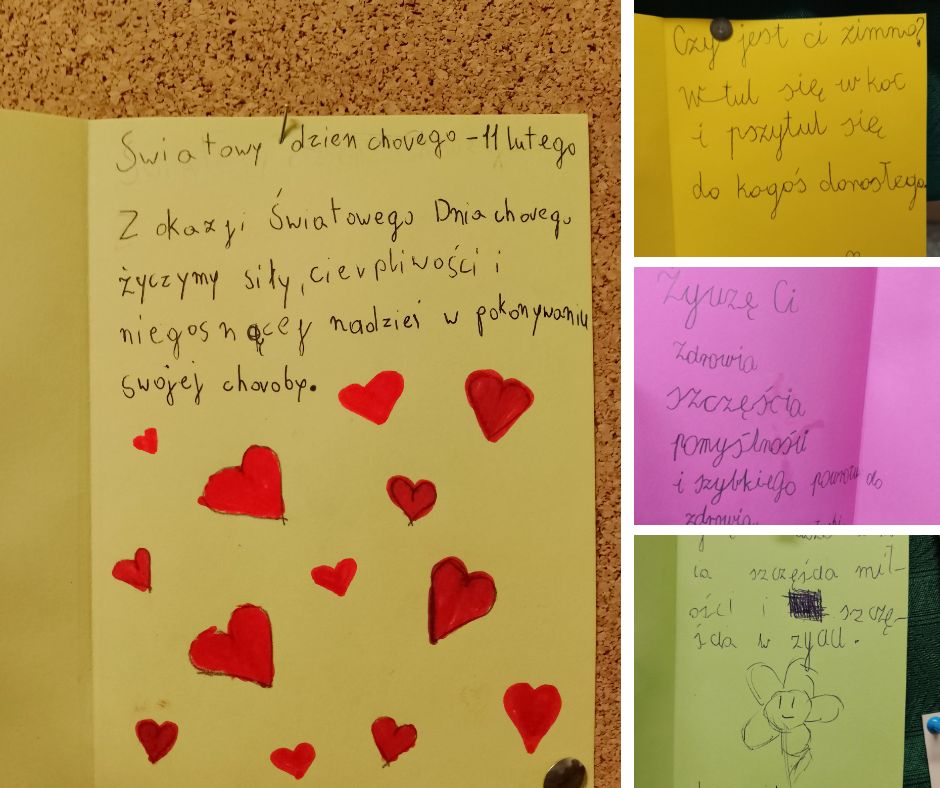 Światowy dzien chorego - 11 lutego
Z okazji Światowego Dnia chorego
życzymy siły, cierpliwości i
niegosnącej nadziei w pokonywaniu
swojej choroby.
Czy jest ci zimno?
W tul się w koc
i pszytul się
do kogoś dorosłego
Życzę Ci
zdrowia
szczęścia
pomyślności
i szybkiego powrotu do
zdrowia
ia szczęścia mił-
ości i szczę-
ścia w życiu.